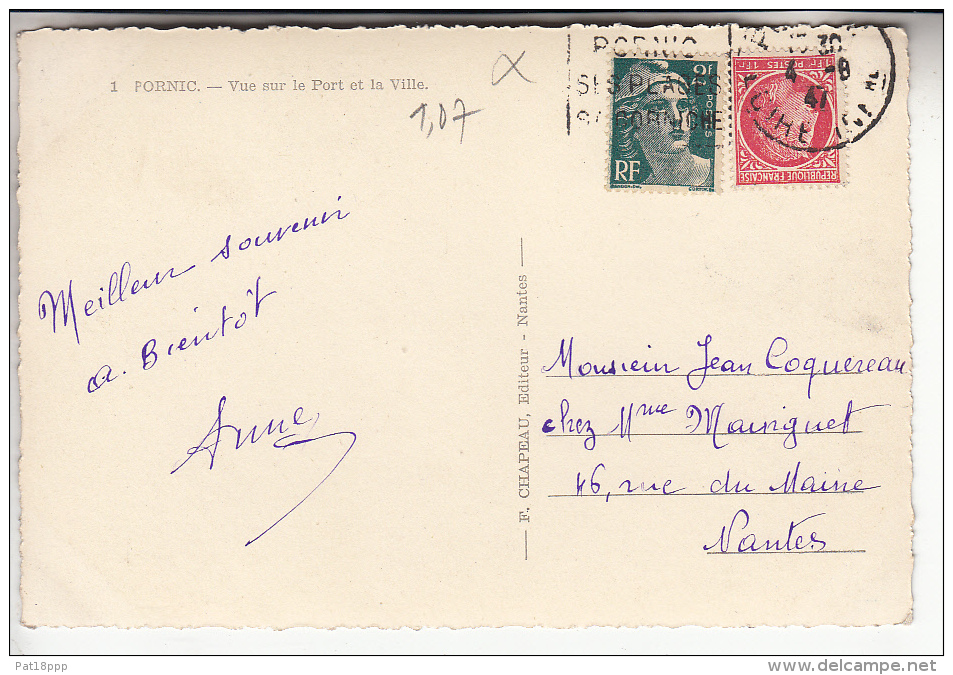 1 PORNIC. — Vue sur le Port et la Ville.
1,07
PORNIC
SES PLAGES
SA CORNICHE
2F
POSTES
RF
1F POSTES 1F
REPUBLIQUE FRANÇAISE
30
4 -8
Meilleur souvenir
a. Bientôt
Anne
F. CHAPEAU, Editeur - Nantes
Monsieur Jean Coquereau
chez Mme Mauriguet
46, rue du Maine
Nantes
Pat18ppp
delcampe.net